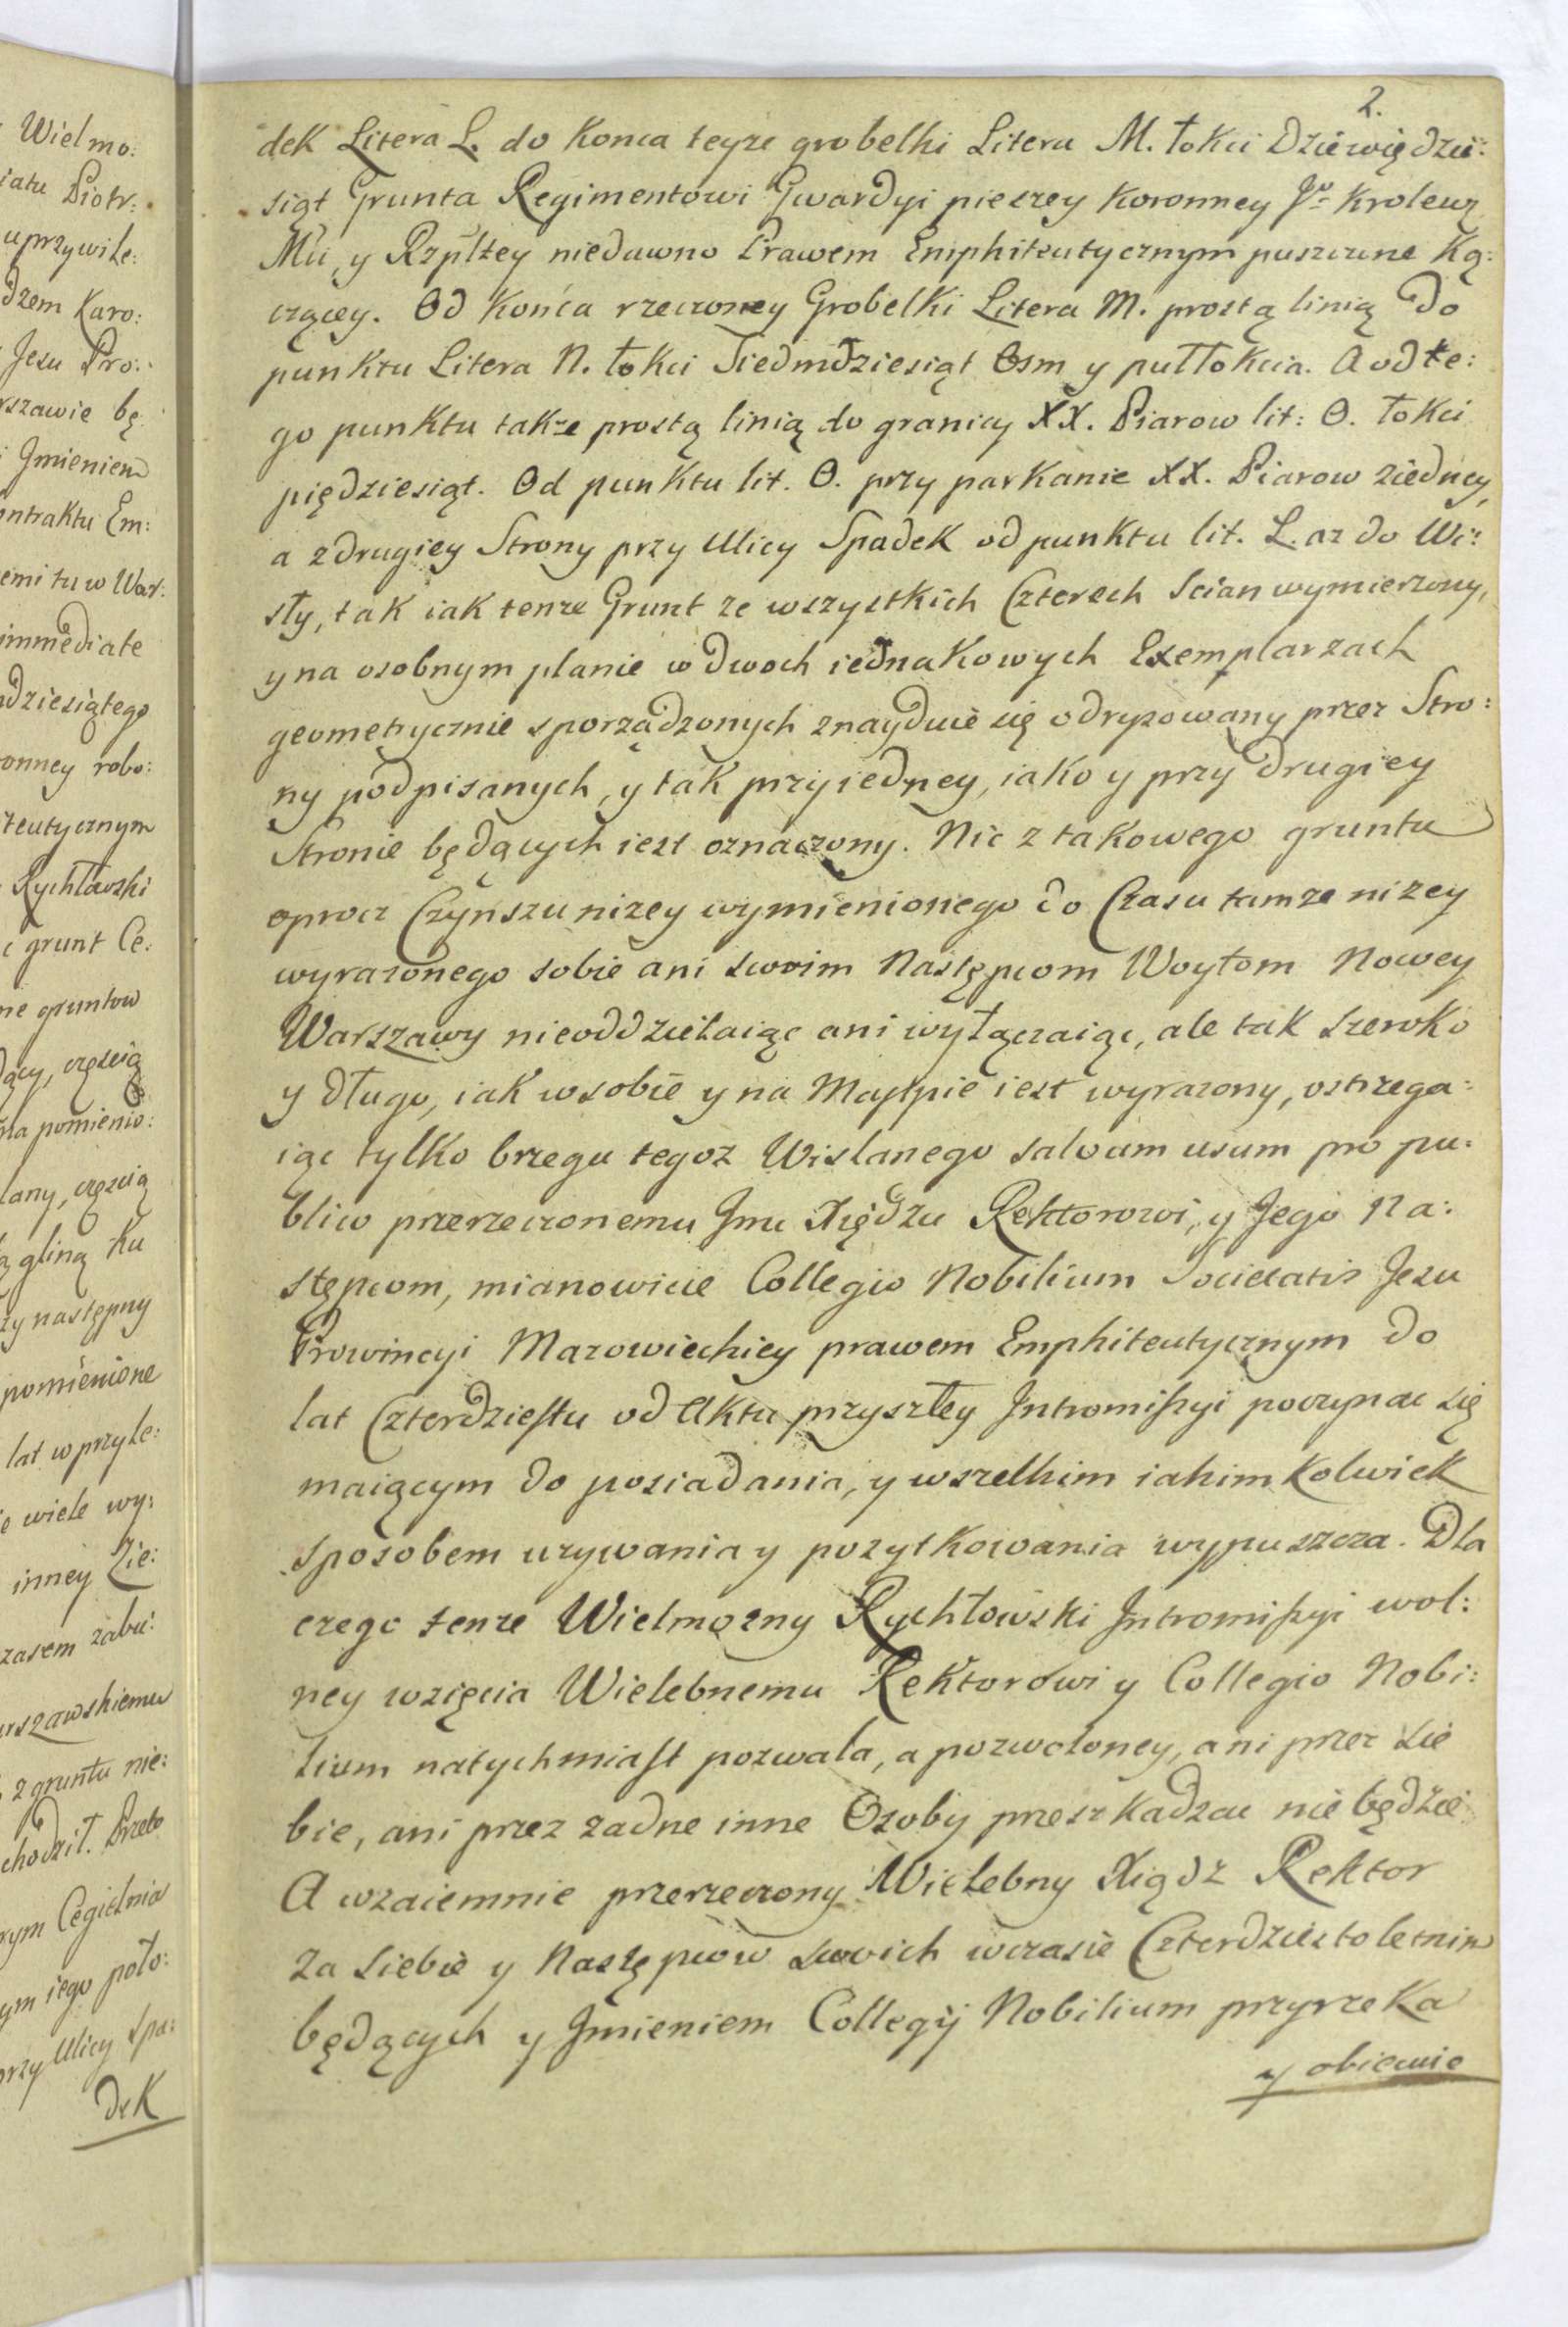 Wielmo:
iatu Piotr:
uprzywile:
dzem Karo:
Jesu Pro:
rszawie bę
Jmieniem
ontraktu Em:
emi tu w War:
immediate
dziesiątego
onney robo:
teutycznym
Rychławski
i grunt Ce:
ne gruntow
dący, częscią
na pomienio:
lany, częscią
ą gliną Ku
zy następny
pomienione
lat w przyle:
ie wiele wy:
inney Zie:
zasem zabu:
rszawskiemu
z gruntu nie:
chodził. Przeto
rym Cegielnia
ym iego poło:
przy Ulicy Spa:
deK
2.
dek Litera L. do Konca teyze grobelki Litera M. łokci Dziewiędzie:
siąt Grunta Regimentowi Gwardyi pieszey Koronney Jo Krolewz
Mci, y Rzpltey niedawno Prawem Emphiteutycznym puszczone Ką:
czącey. Od Końca rzeczoney Grobelki Litera M. prostą linią do
punktu Litera N. łokci Siedmdziesiąt Osm y pułłokcia. A od te:
go punktu takze prostą linią do granicy XX. Piarow lit: O. łokci
pięдziesiąt. Od punktu lit. O. przy parkanie XX. Piarow ziedney,
a z drugiey Strony przy Ulicy Spadek od punktu lit. L. az do Wi:
sły, tak iak tenze Grunt ze wszystkich Czterech Scian wymierzony,
y na osobnym planie w dwoch iednakowych Exemplarzach
geometrycznie sporządzonych znayduie się odryzowany przez Stro:
ny podpisanych, y tak przy iedney, iako y przy drugiey
Stronie będących iest oznaczony. Nic z takowego gruntu
oprocz Czynszu nizey wymienionego do Czasu tamze nizey
wyrazonego sobie ani swoim Następcom Woytom Nowey
Warszawy nieoddzielaiąc ani wyłączaiąc, ale tak szeroko
y długo, iak w sobie y na Mappie iest wyrazony, ostrzega:
iąc tylko brzegu tegoz Wislanego salvum usum pro pu:
blico przerzeczonemu Jmc Xiędzu Rektorowi, y Jego Na:
stępcom, mianowicie Collegio Nobilium Societatis Jesu
Prowincyi Mazowieckiey prawem Emphiteutycznym do
lat Czterdziestu od Aktu przyszłey Intromissyi poczynac się
maiącym do posiadania, y wszelkim iakim Kolwiek
sposobem uzywania y pozytkowania wypuszcza. Dla
czego tenze Wielmozny Rychłowski Intromissyi wol:
ney wzięcia Wielebnemu Rektorowi y Collegio Nobi:
lium natychmiast pozwala, a pozwoloney, ani przez sie
bie, ani przez zadne inne Osoby przeszkadzac nie będzie
A wzaiemnie przerzeczony Wielebny Xiądz Rektor
za siebie y Następcow swoich wczasie Czterdziestoletnim
będących y Jmieniem Collegij Nobilium przyrzeka
y obiecuie